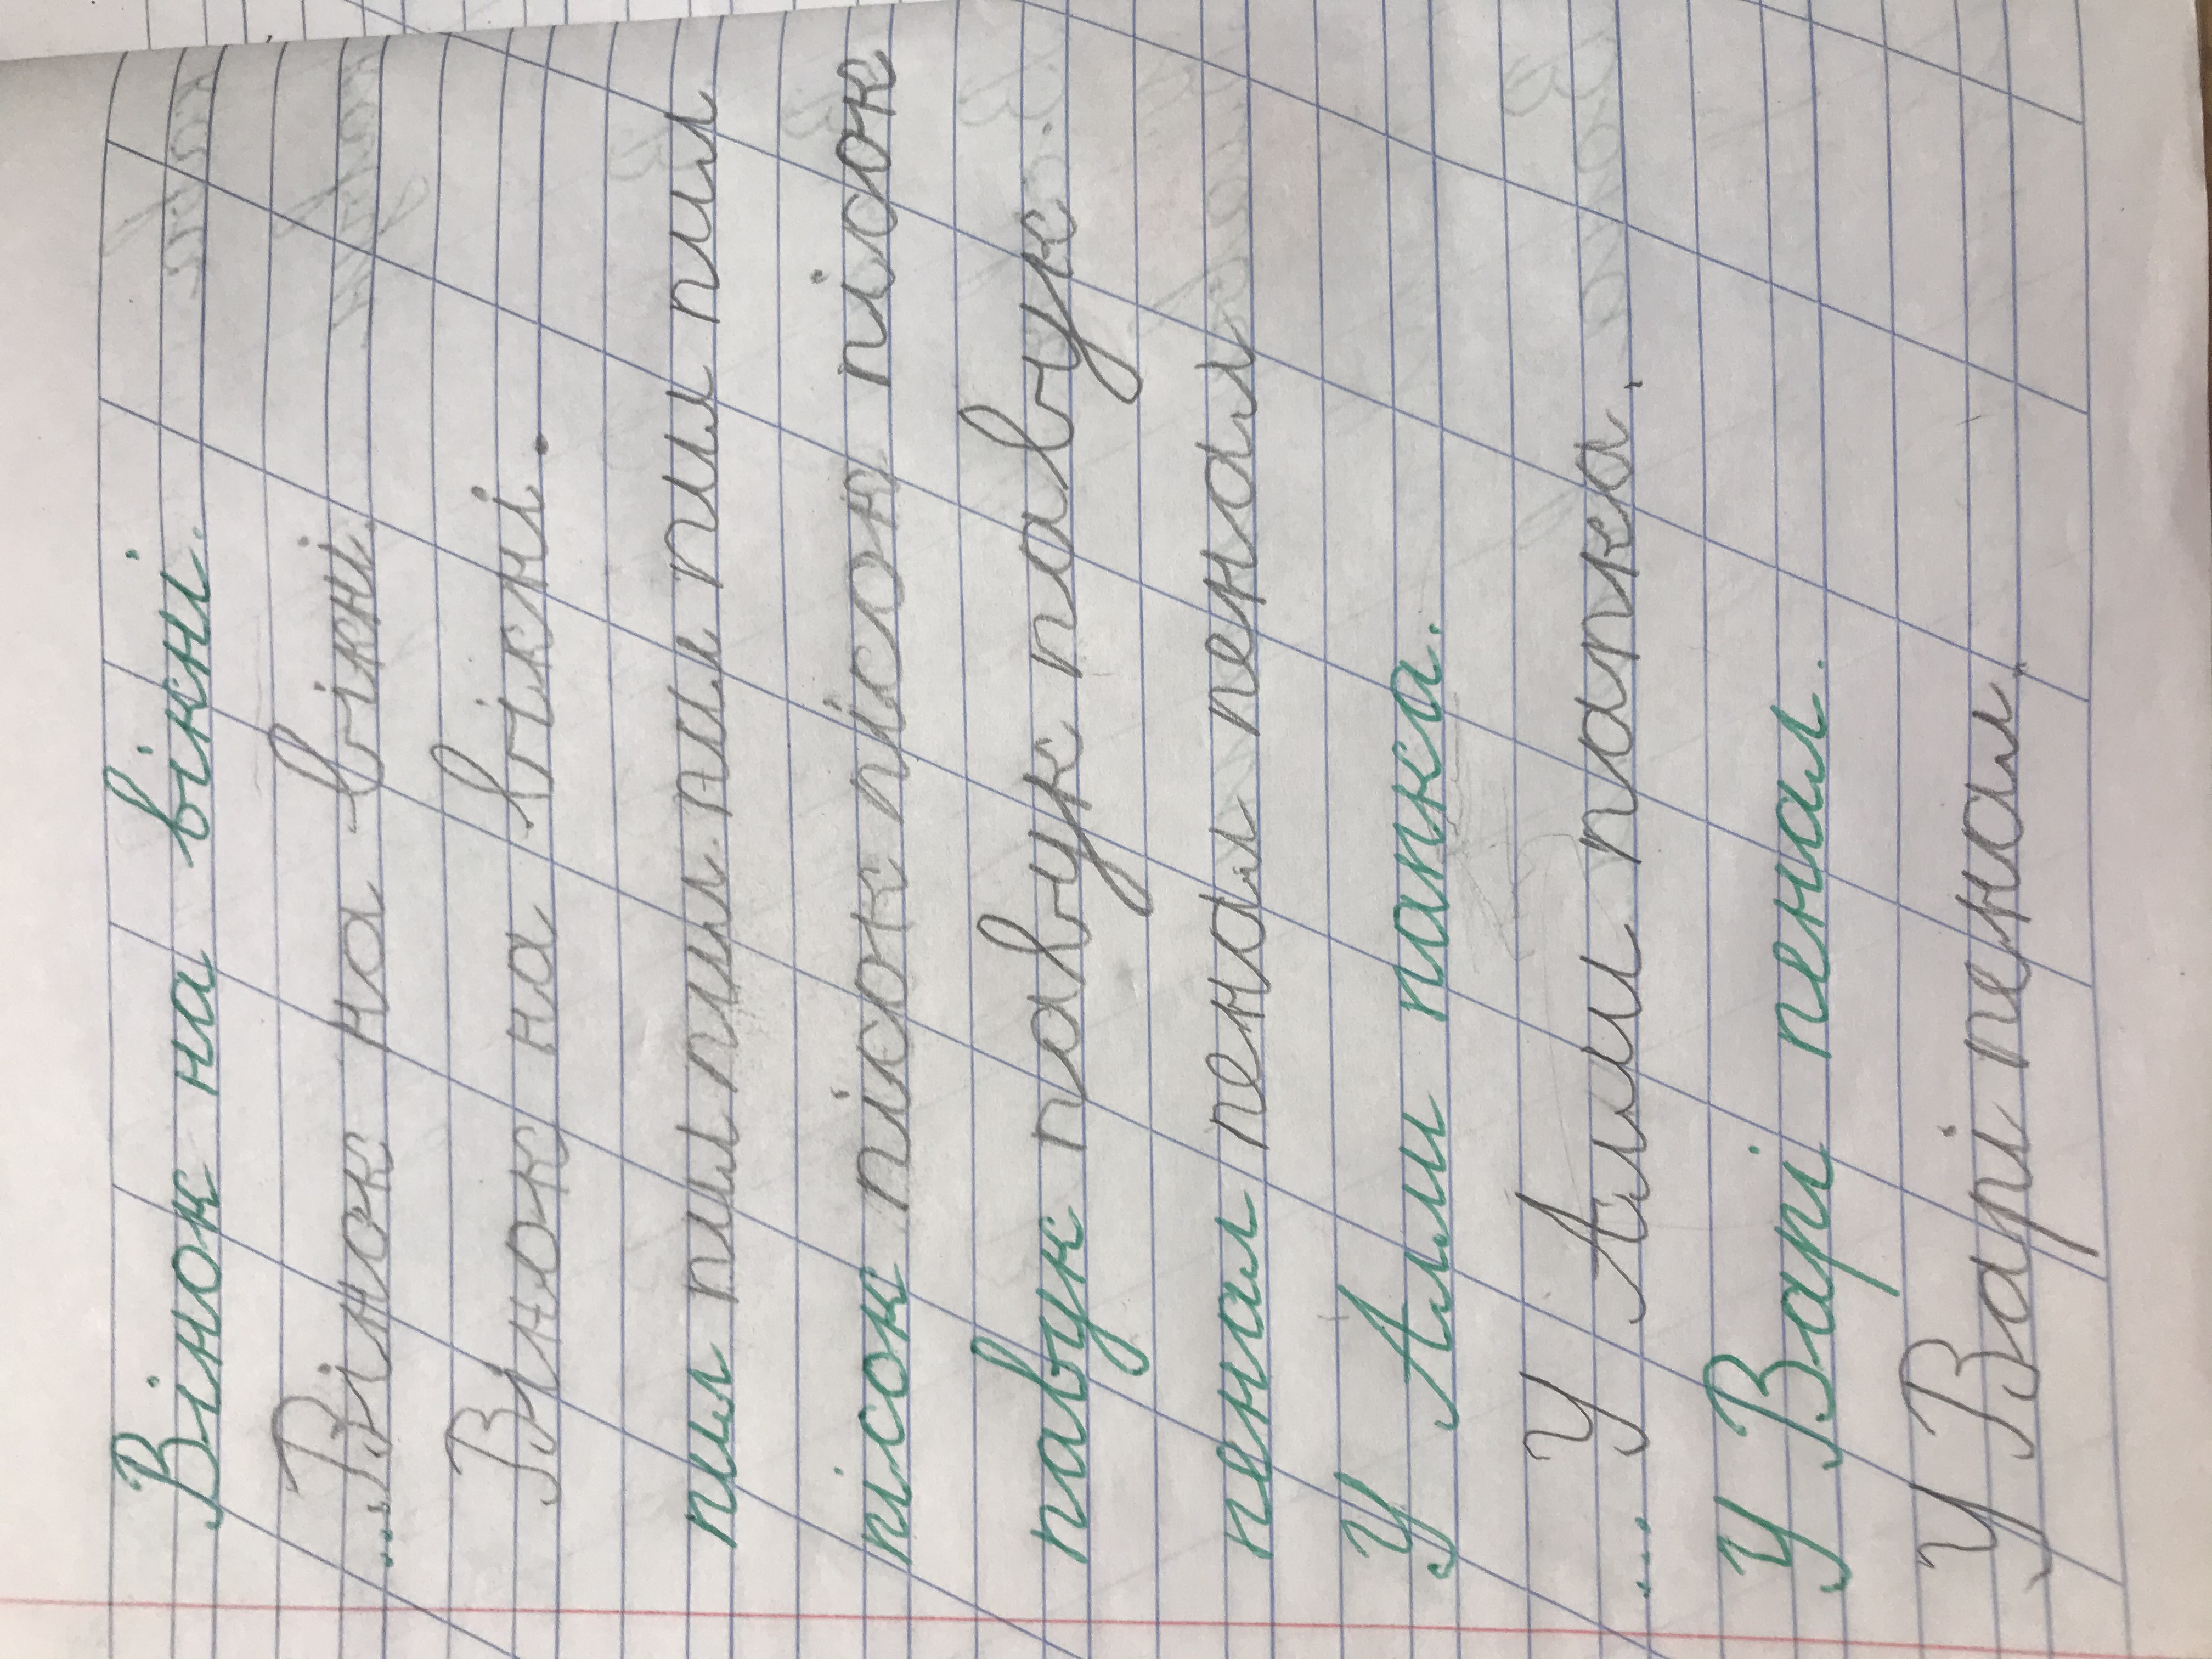 Вінок на вікні.
Вінок на вікні.
Вінок на вікні.
пил пил пил пил пил пил
пісок пісок пісок пісок
павук павук павук
пенал пенал пенал
У Алли папка.
У Алли папка.
У Варі пенал.
У Варі пенал.